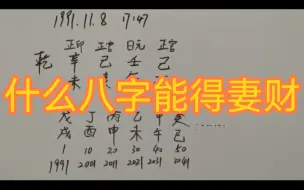 1991.11.8 17:47
正印 正官 日元 正官
乾 辛 己 壬 己
未 亥
什么八字能得妻财
戊 丁 丙 乙 甲
戌 酉 申 未 午 巳
1 10 20 30 40 50
1991 2001 2011 2021 2031 2041